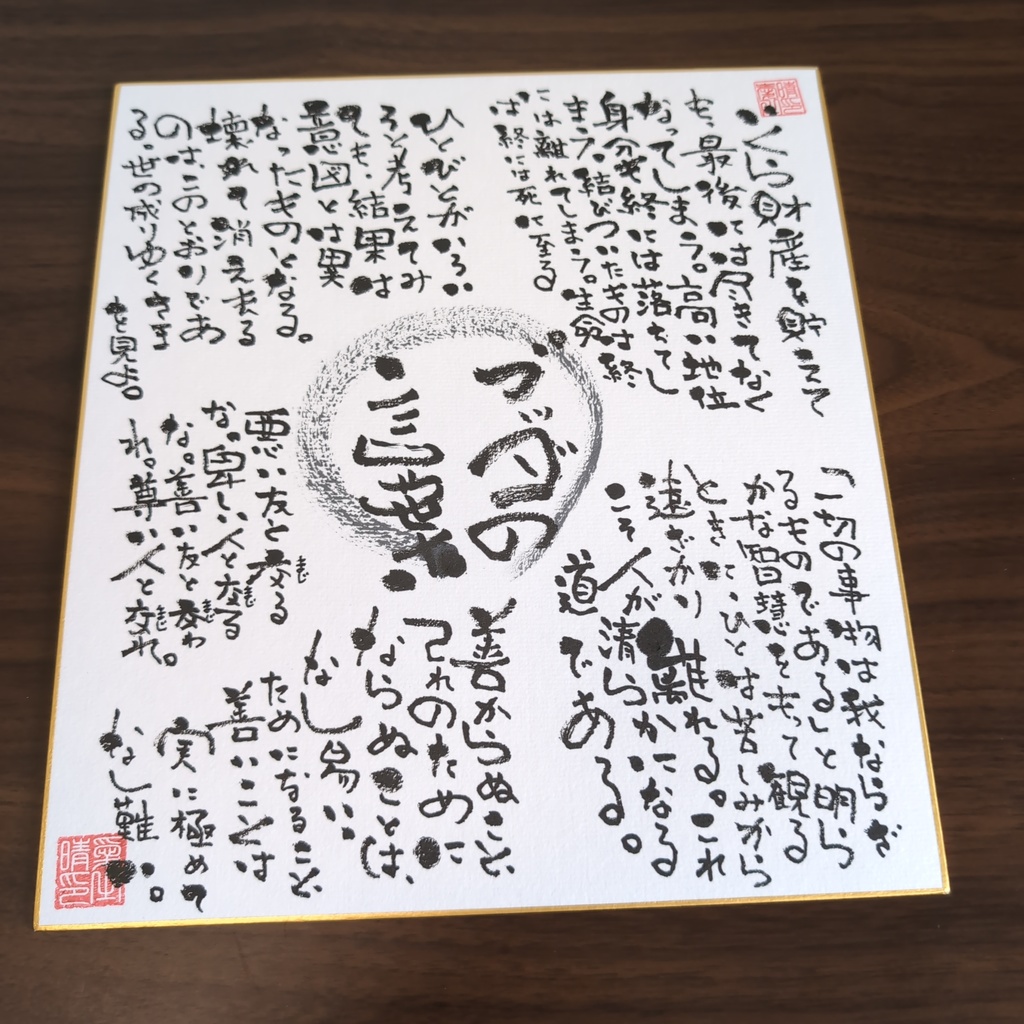 いくら財産を貯えて
も、最後には尽きてなく
なってしまう。高い地位
身分も終には落ちてし
まう。結びついたものは終
には離れてしまう。生命
は終には死に至る
ひとびとがいろい
ろと考えてみ
ても、結果は
意図とは異
なったものとなる。
壊れて消え去る
のは、このとおりであ
る。世の成りゆくさま
を見よ。
ブッダの
言葉
一切の事物は我ならざ
るものである」と明ら
かな智慧をもって観る
ときに、ひとは苦しみから
遠ざかり離れる。これ
こそ人が清らかになる
道である。
悪い友と交る
まじ
な。卑しい人と交る
まじ
な。善い友と交わ
まじ
れ。尊い人と交われ。
まじ
善からぬこと
己れのために
ならぬことは、
なし易い
ためになること
善いことは
実に極めて
なし難い。